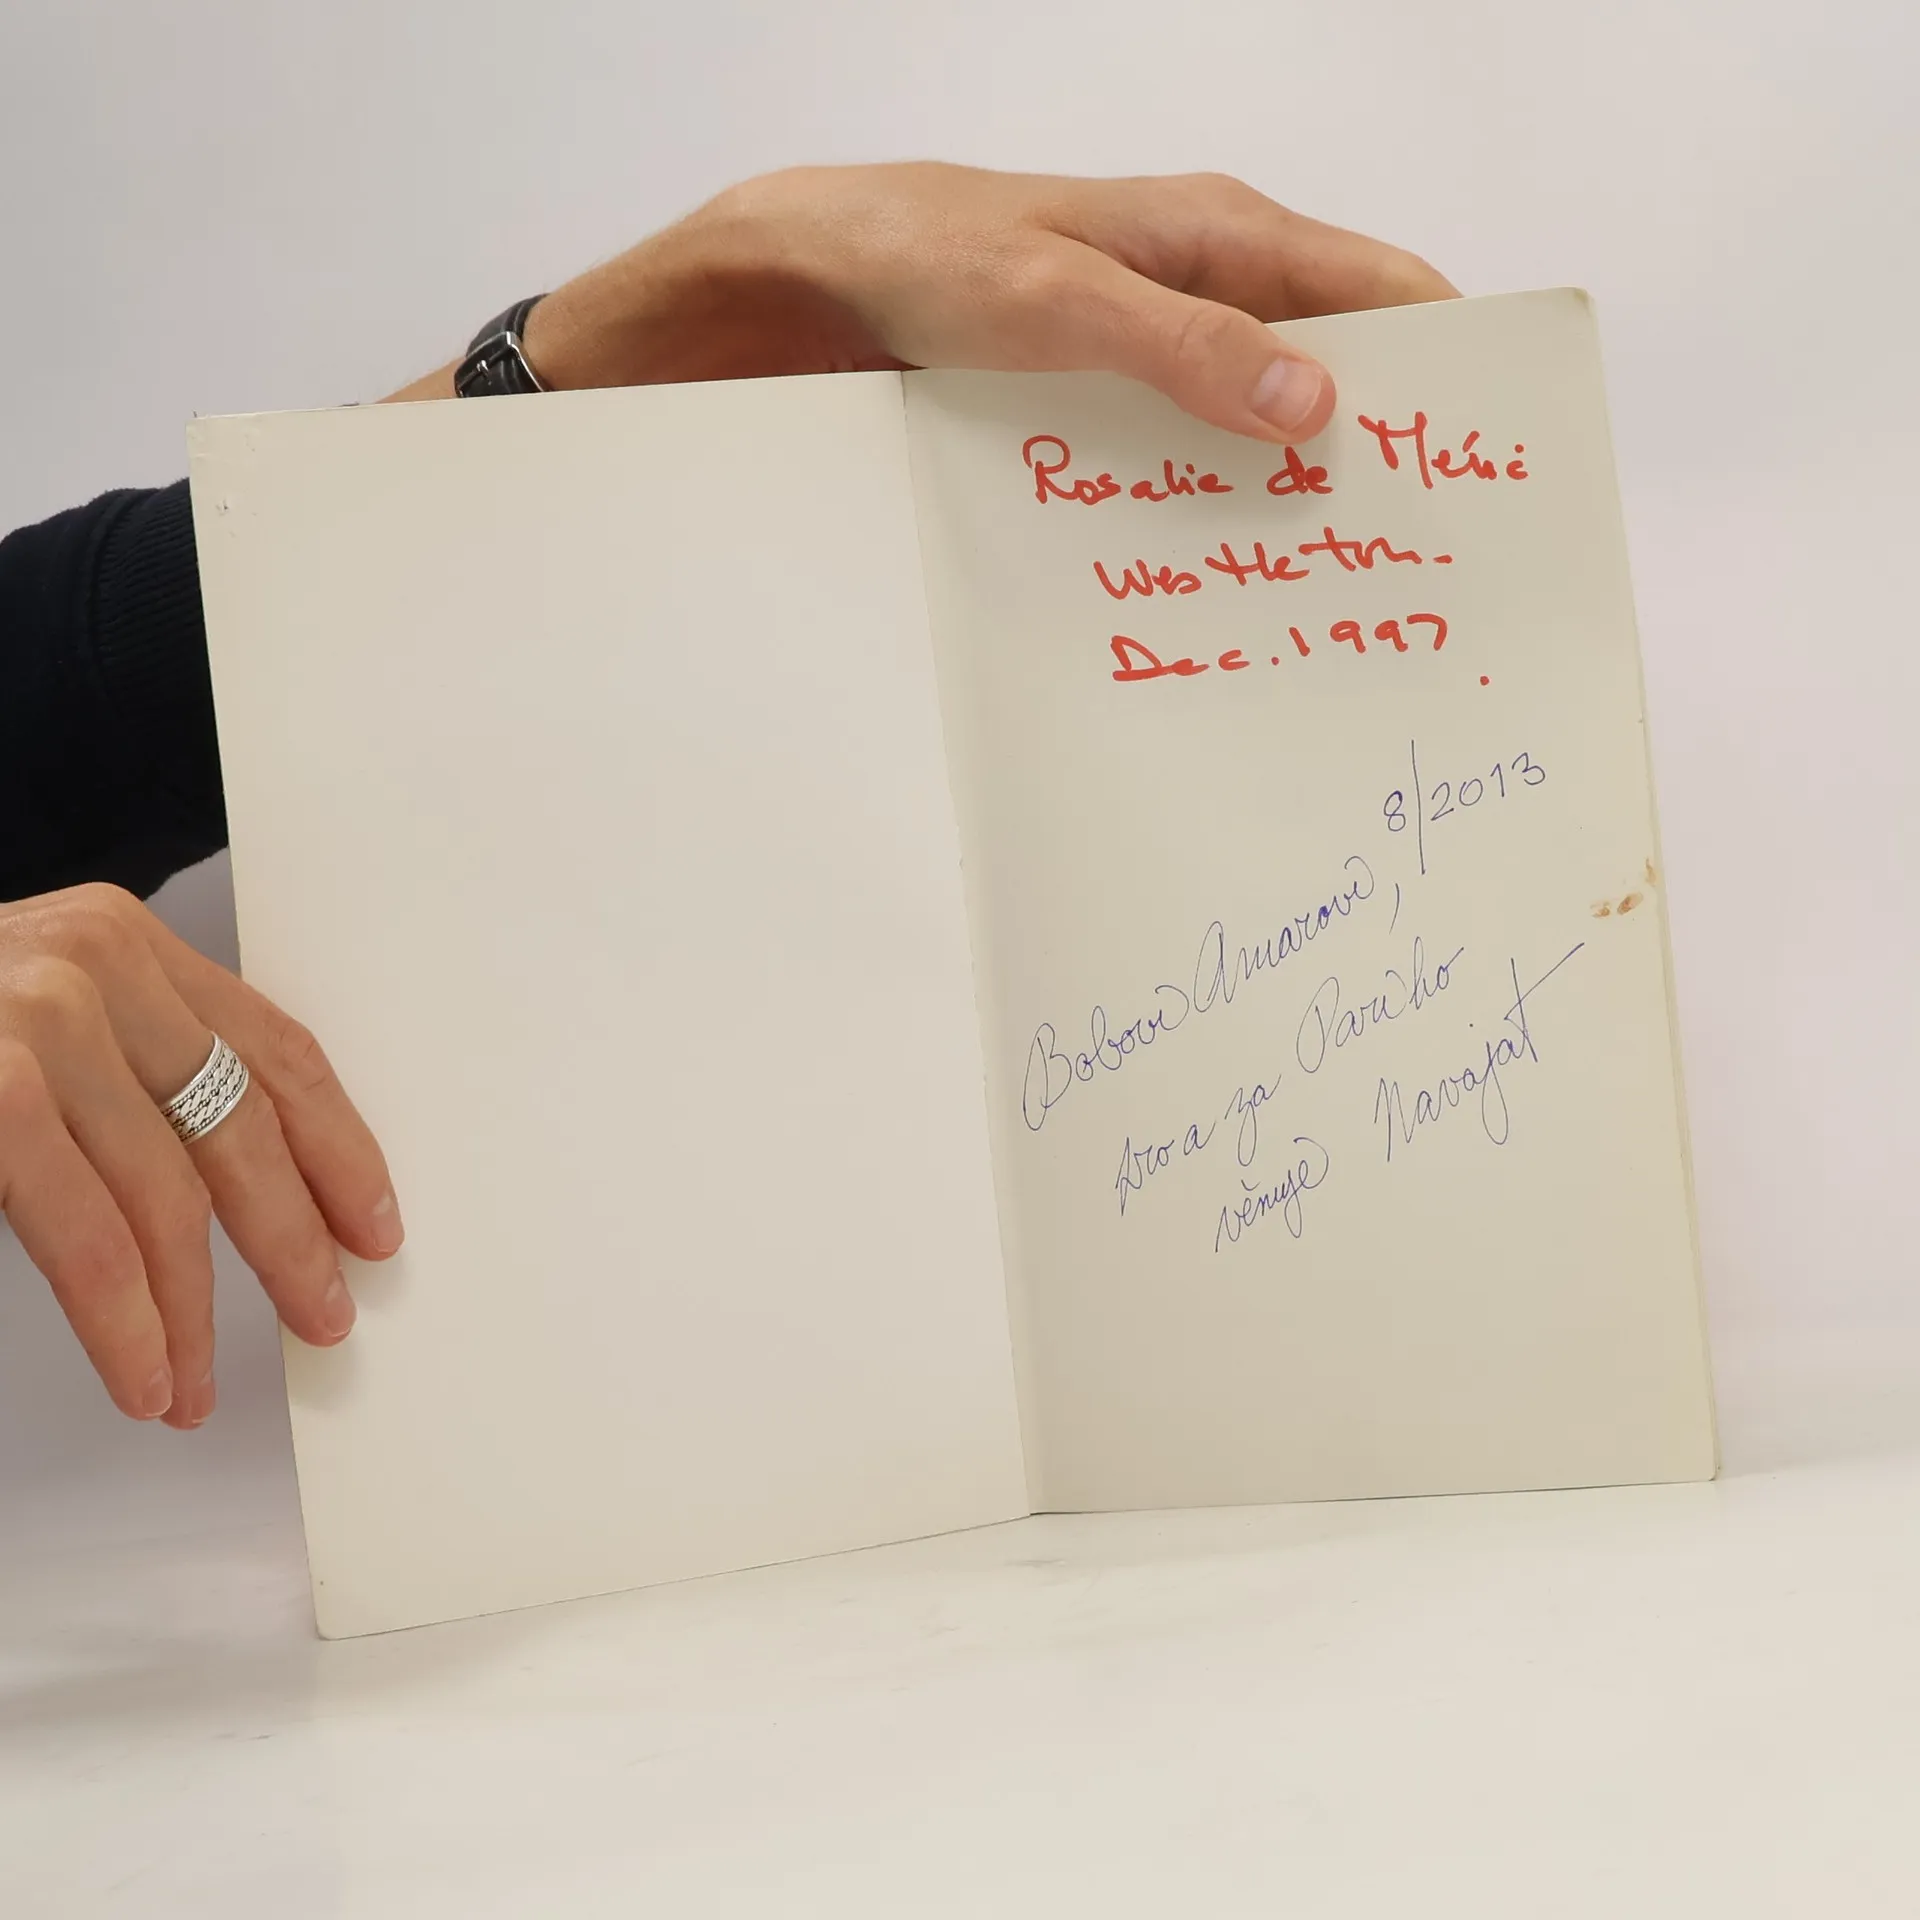 Rosalie de Méric
Westleton.
Dec. 1997.
8/2013
Bobovi Amarovi,
pro a za
věnuje Navaját